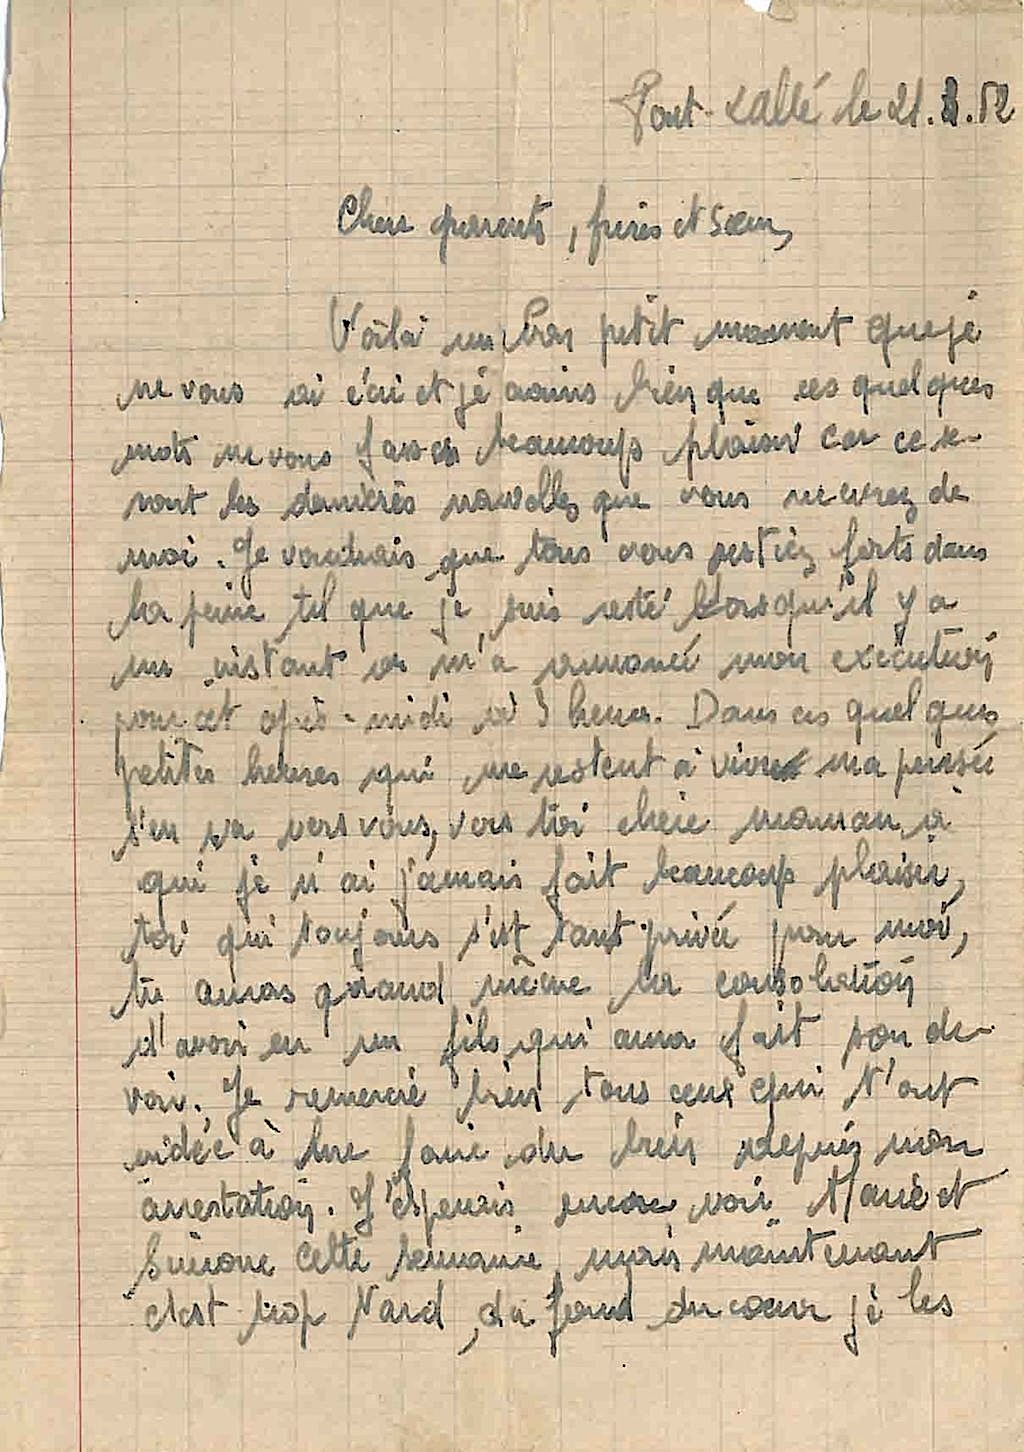 Pont-Kallé le 21.
Chers parents, frères et sœur,
Voilà un bon petit moment que je
ne vous ai écri et je crains bien que ces quelques
mots ne vous fasses beaucoup plaisir car ce se-
ront les dernières nouvelles que vous recevrez de
moi. Je voudrais que tous vous restiez forts dans
la peine tel que je suis resté lorsqu'il y a
un instant on m'a annoncé mon exécution
pour cet après-midi à 3 heures. Dans ces quelques
petites heures qui me restent à vivre ma pensée
s'en va vers vous, vers toi chère maman à
qui je n'ai jamais fait beaucoup plaisir,
toi qui toujours s'est tant privée pour moi,
tu auras quand même la consolation
d'avoir eu un fils qui aura fait son de-
voir. Je remercie bien tous ceux qui t'ont
aidée à me faire du bien depuis mon
arrestation. J'espérais encore voir et
Simone cette semaine mais maintenant
c'est trop tard, du fond du cœur je les